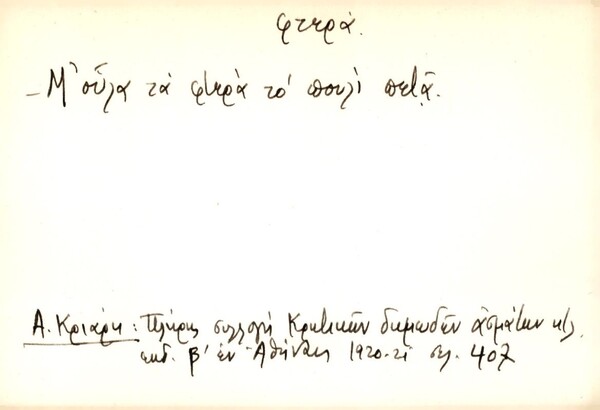 φτερά.
– Μ' οὗλα τὰ φτερὰ τὸ πουλὶ πετᾷ.
Α. Κριάρη: Πλήρης συλλογὴ Κρητικῶν δημωδῶν ᾀσμάτων κτλ.
ἐκδ. β' ἐν Ἀθήναις 1920-21 σελ. 407